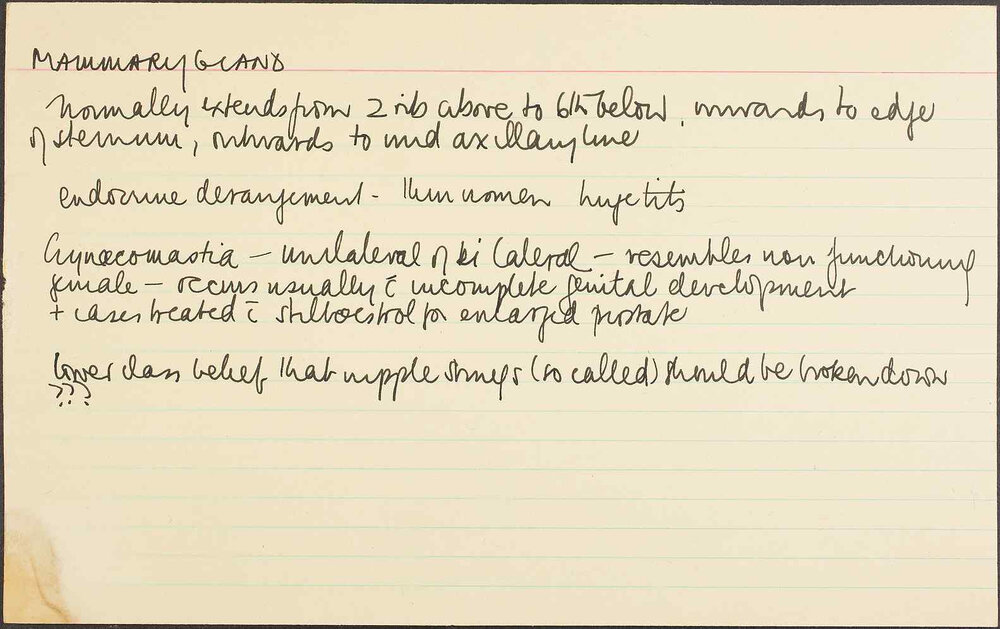 MAMMARY GLAND
Normally extends from 2 rib above to 6th below, inwards to edge
of sternum, outwards to mid axillary line
endocrine derangement - thin women huge tits
Gynaecomastia – unilateral or bilateral – resembles non functioning
female – occurs usually c̄ incomplete genital development
+ cases treated c̄ stilboestrol for enlarged prostate
lower class belief that nipple strings (so called) should be broken down
???